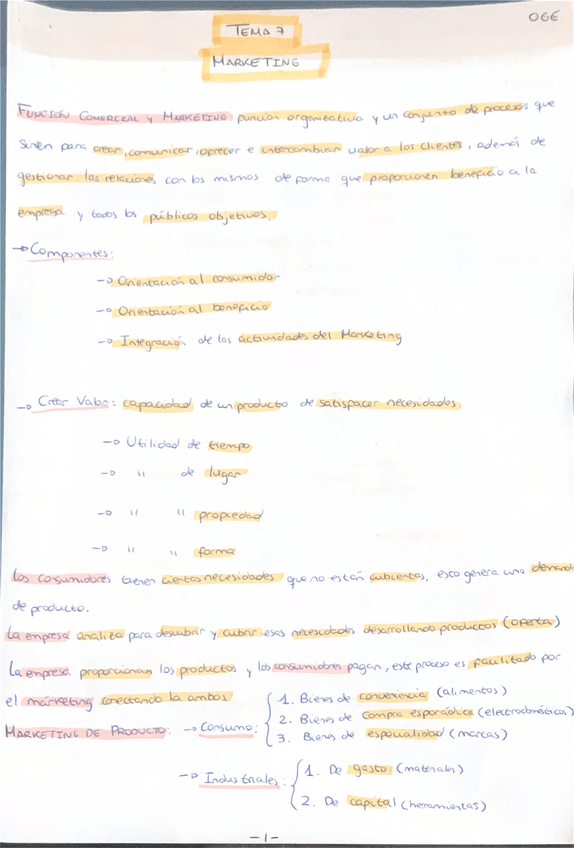 OGE
TEMA 7
MARKETING
FUNCIÓN COMERCIAL Y MARKETING: función organizativa y un conjunto de procesos que
sirven para crear, comunicar, ofrecer e intercambiar valor a los clientes, además de
gestionar las relaciones con los mismos de forma que proporcionen beneficio a la
empresa y todos los públicos objetivos.
→ Componentes:
→ Orientación al consumidor
→ Orientación al beneficio
→ Integración de las actividades del Marketing
→ Crear Valor: capacidad de un producto de satisfacer necesidades
→ Utilidad de tiempo
→ " de lugar
→ " " propiedad
→ " " forma
Los consumidores tienen ciertas necesidades que no están cubiertas, esto genera una demand
de producto.
La empresa analiza para descubrir y cubrir esas necesidades desarrollando productos (oferta)
La empresa proporcionan los productos y los consumidores pagan, este proceso es facilitado por
el márketing conectando la ambos
MARKETING DE PRODUCTO: → Consumo: { 1. Bienes de conveniencia (alimentos)
2. Bienes de compra esporádica (electrodomésticos)
3. Bienes de especialidad (marcas)
→ Industriales: { 1. De gasto (materiales)
2. De capital (herramientas)
-1-